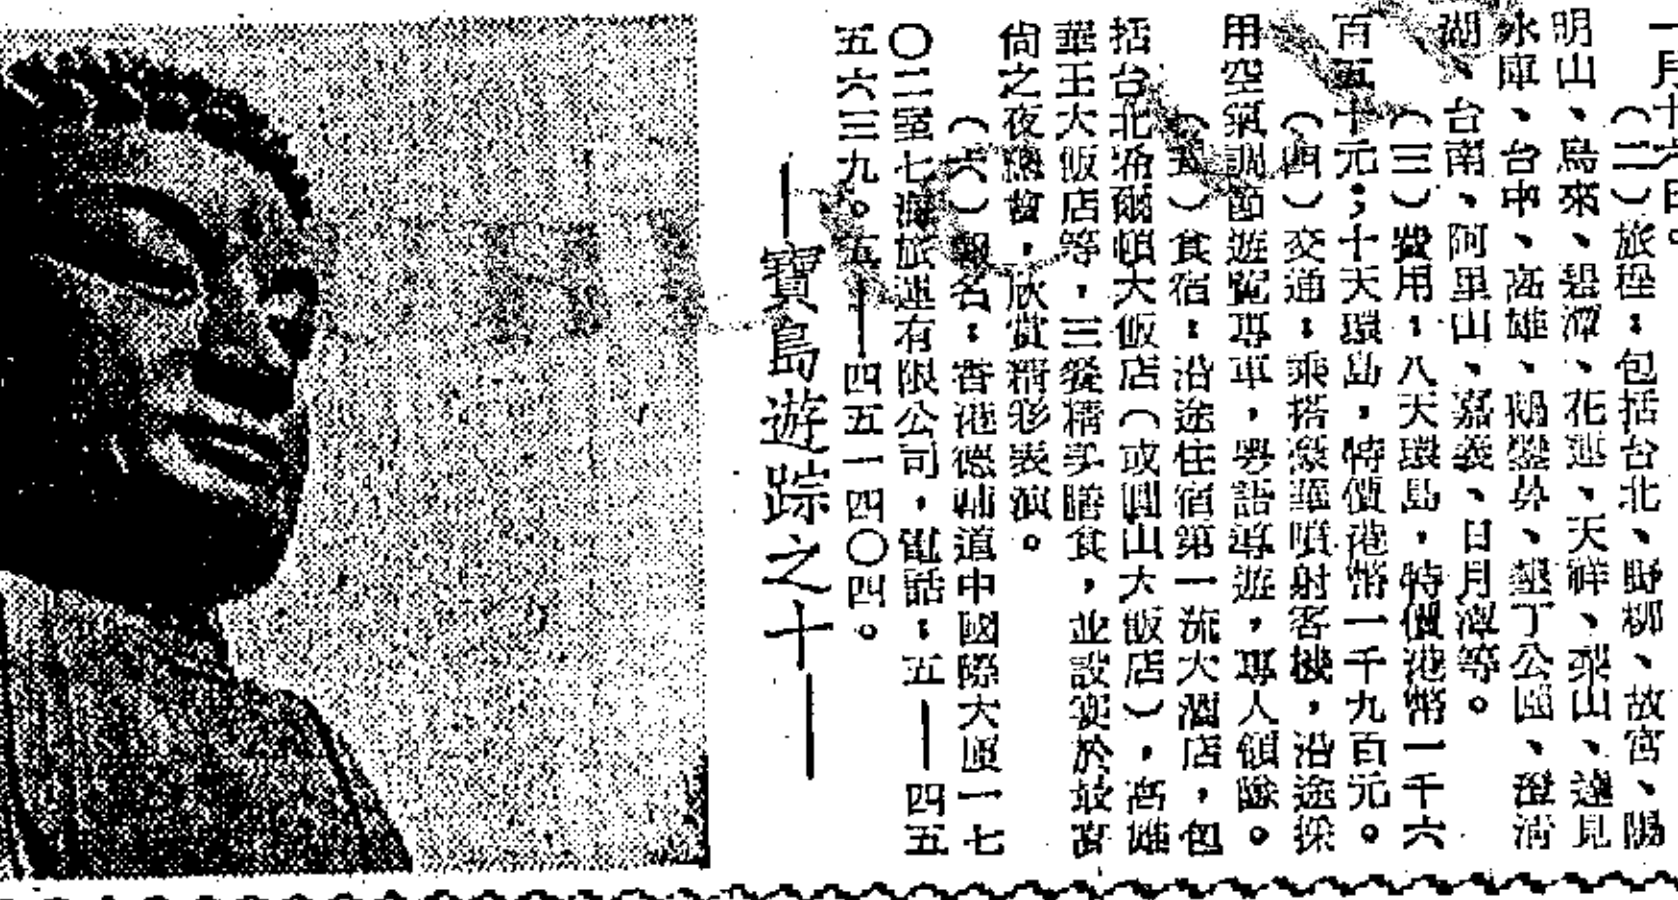 一月十六日。
（二）旅程：包括台北、野柳、故宮、陽
明山、烏來、碧潭、花蓮、天祥、梨山、達見
水庫、台中、高雄、鵝鑾鼻、墾丁公園、澄清
湖、台南、阿里山、嘉義、日月潭等。
（三）費用：八天環島，特價港幣一千六
百五十元；十天環島，特價港幣一千九百元。
（四）交通：乘搭豪華噴射客機，沿途採
用空氣調節遊覽專車，粵語導遊，專人領隊。
（五）食宿：沿途住宿第一流大酒店，包
括台北希爾頓大飯店（或圓山大飯店），高雄
華王大飯店等，三餐精美膳食，並設宴於最高
尚之夜總會，欣賞精彩表演。
（六）報名：香港德輔道中國際大厦一七
〇二室七海旅運有限公司，電話：五——四五
五六三九。五——四五一四〇四。
——寶島遊踪之十——